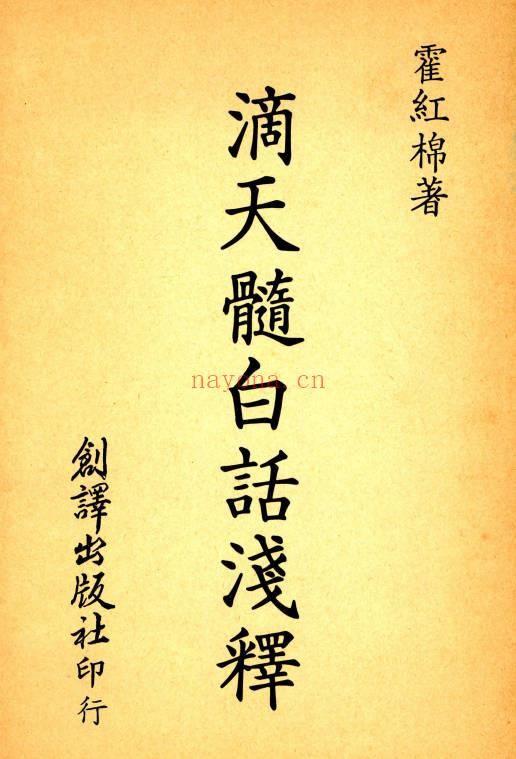 霍紅棉著
滴天髓白話淺釋
nayona.cn
創譯出版社印行